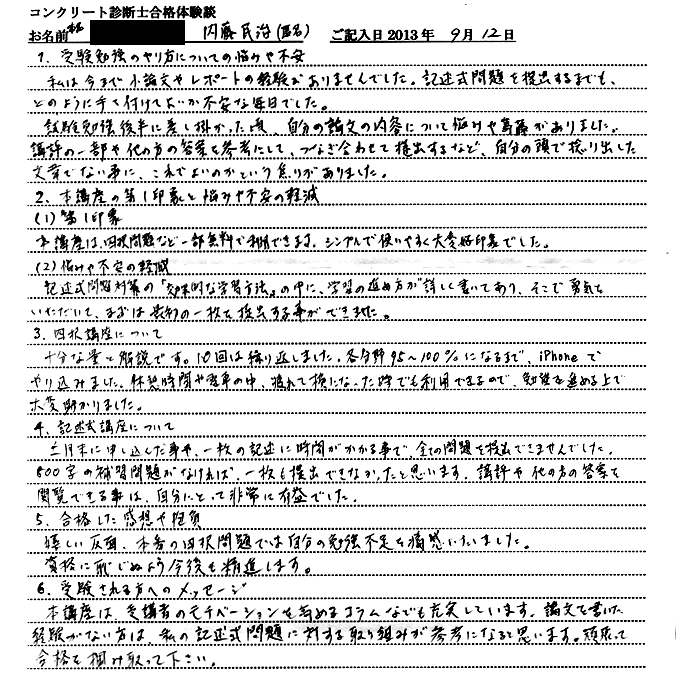 コンクリート診断士合格体験談
お名前 本名 内藤民治(匿名) ご記入日2013年 9月12日
1. 受験勉強のやり方についての悩みや不安
私は今まで小論文やレポートの経験がありませんでした。記述式問題を提出するまでも、
どのように手を付けてよいか不安な毎日でした。
試験勉強後半に差し掛かった頃、自分の論文の内容について悩みや葛藤がありました。
講評の一部や他の方の答案を参考にして、つなぎ合わせて提出するなど、自分の頭で捻り出した
文章でない事に、これでよいのかという焦りがありました。
2. 本講座の第1印象と悩みや不安の軽減
(1) 第1印象
本講座は、四択問題など一部無料で利用できます。シンプルで使いやすく大変好印象でした。
(2) 悩みや不安の軽減
記述式問題対策の「効果的な学習方法」の中に、学習の進め方が詳しく書いてあり、そこで勇気を
いただいて、まずは最初の一枚を提出する事ができました。
3. 四択講座について
十分な量と解説です。10回は繰り返しました。各分野95~100%になるまで、iPhoneで
やり込みました。休憩時間や電車の中、疲れて横になった時でも利用できるので、勉強を進める上で
大変助かりました。
4. 記述式講座について
三月末に申し込んだ事や、一枚の記述に時間がかかる事で、全ての問題を提出できませんでした。
800字の補習問題がなければ、一枚も提出できなかったと思います。講評や他の方の答案を
閲覧できる事は、自分にとって非常に有益でした。
5. 合格した感想や抱負
嬉しい反面、本番の四択問題では自分の勉強不足を痛感いたしました。
資格に恥じぬよう今後も精進します。
6. 受験される方へのメッセージ
本講座は、受講者のモチベーションを高めるコラムなども充実しています。論文を書いた
経験がない方は、私の記述式問題に対する取り組みが参考になると思います。頑張って
合格を掴み取って下さい。